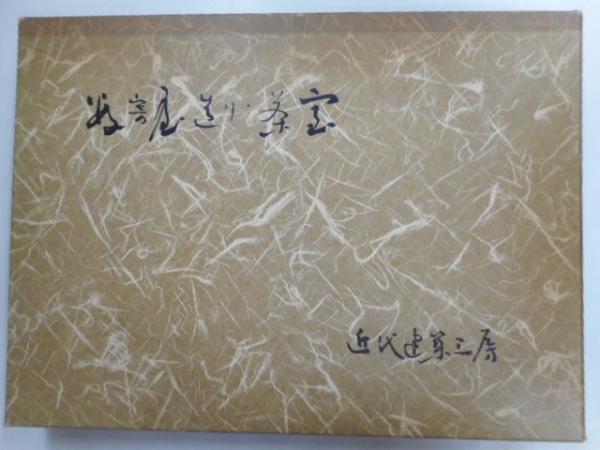 数寄屋造り・茶室
近代建築工房